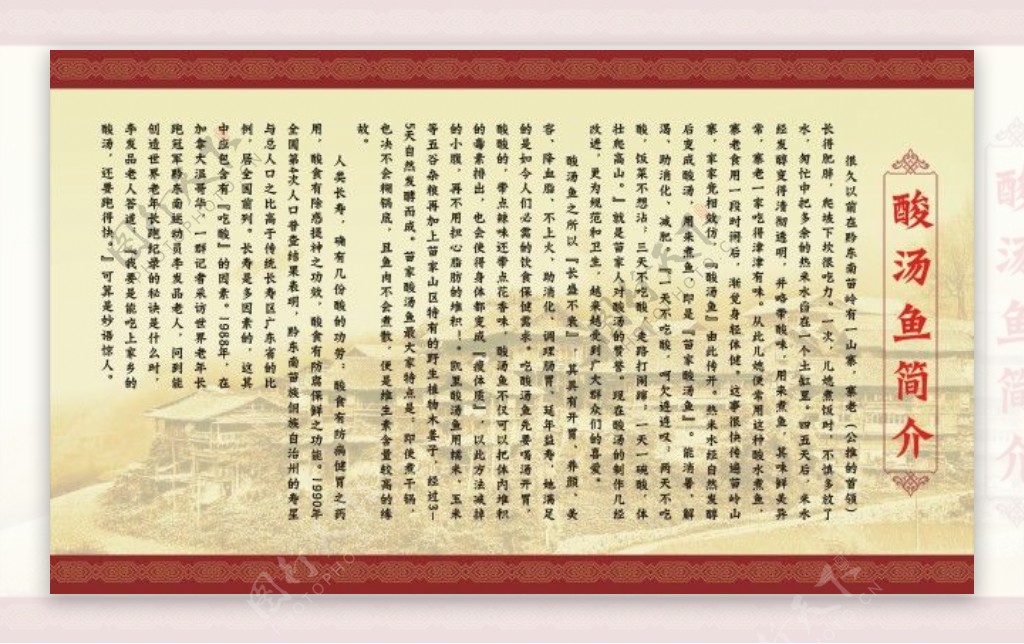 酸汤鱼简介
很久以前在黔东南苗岭有一山寨，寨老（公推的首领）
长得肥胖，爬坡下坎很吃力。一次，儿媳煮饭时，不慎多放了
水，匆忙中把多余的热米水舀在一个土缸里。四五天后，米水
经发醇变得清彻透明，并略带酸味，用来煮鱼，其味鲜美异
常，寨老一家吃得津津有味。从此儿媳便常用这种酸水煮鱼，
寨老食用一段时间后，渐觉身轻体健。这事很快传遍苗岭山
寨，家家竞相效仿，『酸汤鱼』由此传开。热米水经自然发醇
后变成酸汤，用来煮鱼，即是『苗家酸汤鱼』。能消暑、解
渴、助消化、减肥。『一天不吃酸，呵欠连连叹；两天不吃
酸，饭菜不想沾；三天不吃酸，走路打闹蹿，一天一碗酸，体
壮爬高山。』就是苗家人对酸汤的赞誉。现在酸汤的制作几经
改进，更为规范和卫生，越来越受到广大群众们的喜爱。
酸汤鱼之所以『长盛不衰』，其具有开胃、养颜、美
容、降血脂、不上火、助消化、调理肠胃、延年益寿，她满足
的是如今人们必需的饮食保健需求。吃酸汤鱼先要喝汤开胃，
酸酸的，带点辣味还带点花香味，酸汤鱼不仅可以把体内堆积
的毒素排出，也会使得身体都变成『瘦体质』，以此方法减掉
的小腹，再不用担心脂肪的堆积！。凯里酸汤鱼用糯米、玉米
等五谷杂粮再加上苗家山区特有的野生植物木姜子，经过3—
5天自然发酵而成。苗家酸汤鱼最大家特点是，即使煮干锅，
也决不会糊锅底，且鱼肉不会煮散，便是维生素含量较高的缘
故。
人类长寿，确有几份酸的功劳：酸食有防病健胃之药
用，酸食有除惑提神之功效，酸食有防腐保鲜之功能。1990年
全国第4次人口普查结果表明，黔东南苗族侗族自治州的寿星
与总人口之比高于传统长寿区广东省的比
例，居全国前列。长寿是多因素的，这其
中应包含有『吃酸』的因素。1988年，在
加拿大温哥华，一群记者采访世界老年长
跑冠军黔东南运动员李发品老人，问到能
创造世界老年长跑纪录的秘诀是什么时，
李发品老人答道『我要是能吃上家乡的
酸汤，还要跑得快。』可算是妙语惊人。